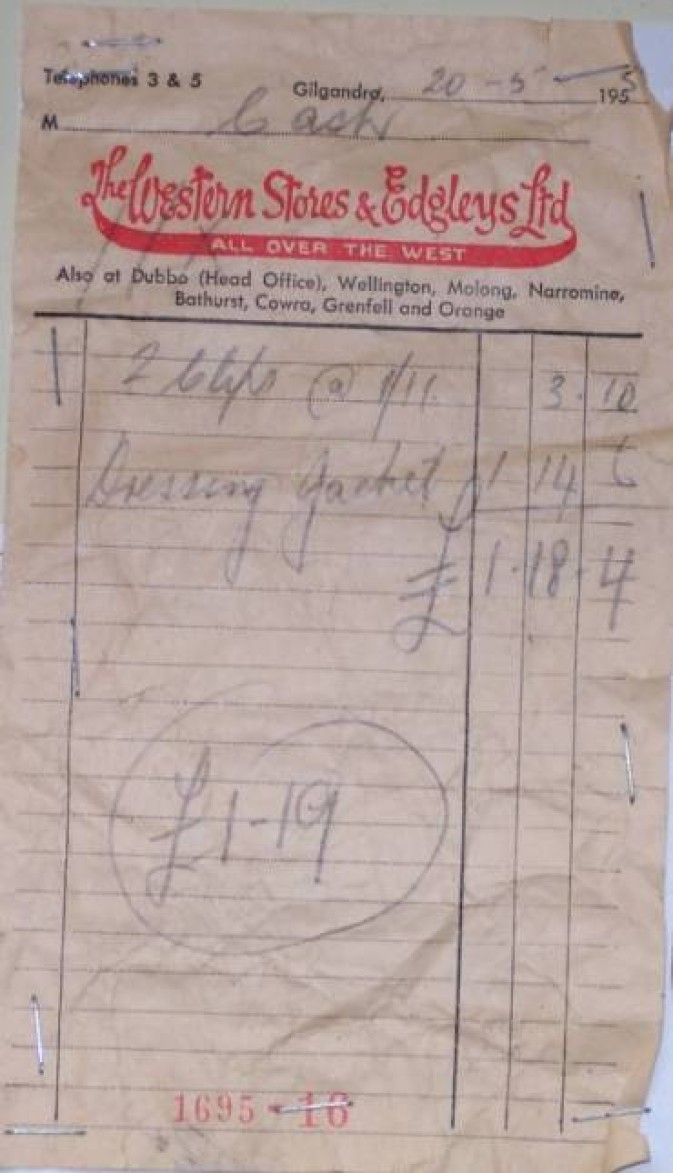 Telephones 3 & 5
Gilgandra, 20-5-1955
M Cash
The Western Stores & Edgleys Ltd
ALL OVER THE WEST
Also at Dubbo (Head Office), Wellington, Molong, Narromine,
Bathurst, Cowra, Grenfell and Orange
2 Clips @ 1/11 3.10
Dressing Jacket 1 14 6
£ 1.18.4
£1-19
1695-16